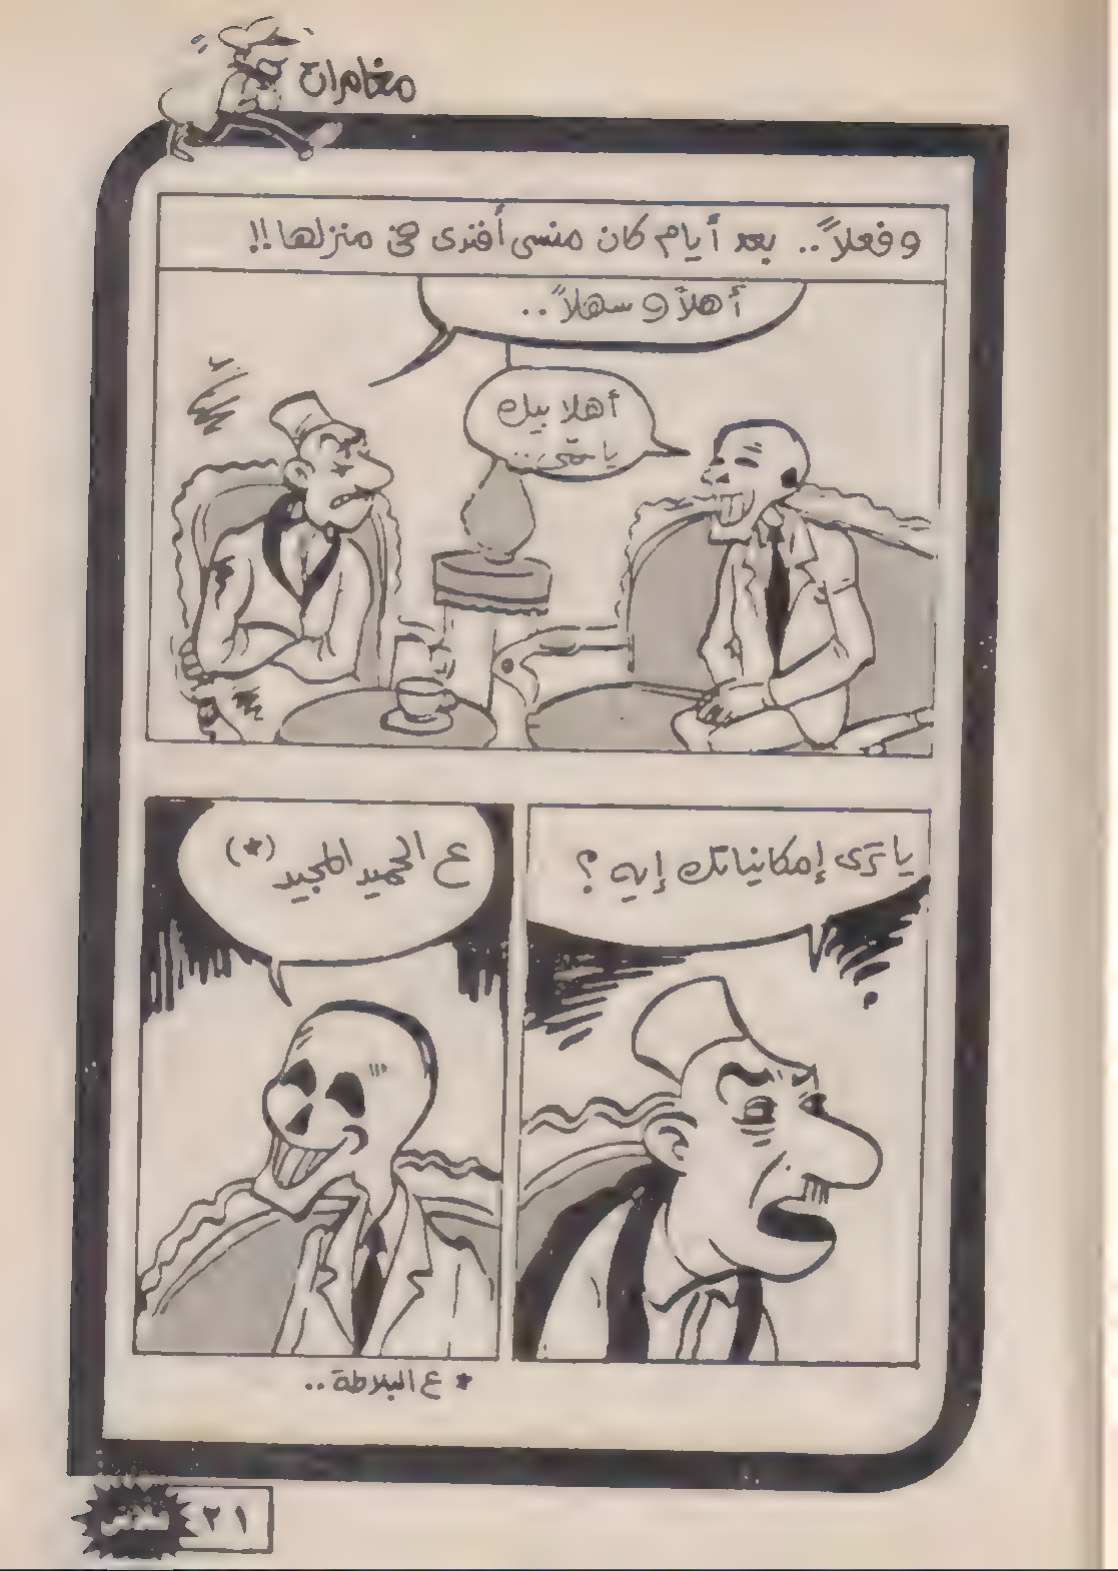 مغامرات
و فعلاً.. بعد أيام كان منسى أفندى فى منزلها!!
أهلاً و سهلاً..
أهلا بيك
يا عمى..
يا ترى إمكانياتك إيه ؟
ع الحميد المجيد (*)
* ع البلاطة..
فلاش ٤٢١